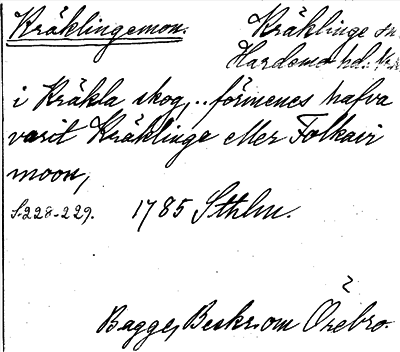 Kräklingemon. Kräklinge sn
Hardemo hd.
i Kräkla skog,.. förmenes hafva
varit Kräklinge eller Folkavi
moon,
S. 228-229. 1785 Sthlm.
Bagge, Beskr. om Örebro.